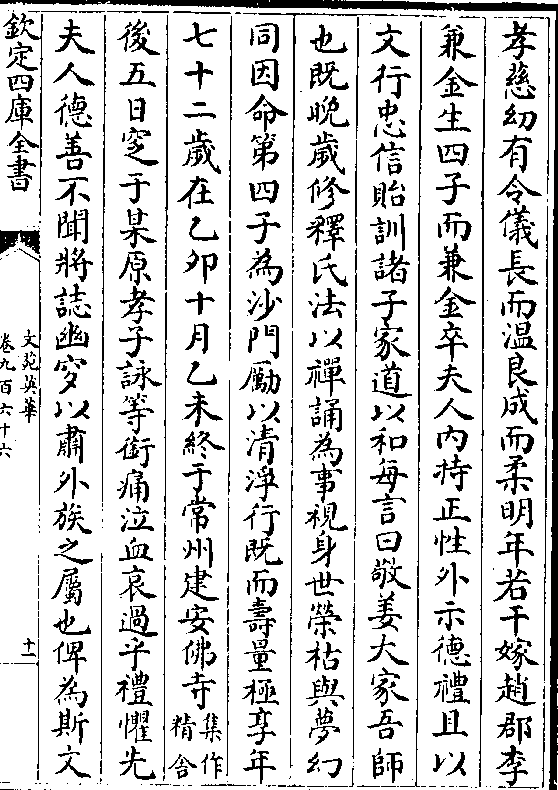 孝慈幼有令儀長而溫良成而柔明年若干嫁趙郡李
兼金生四子而兼金卒夫人内持正性外示德禮且以
文行忠信貽訓諸子家道以和每言曰敬姜大家吾師
也既晩歲修釋氏法以禪誦為事視身世榮枯與夢幻
同因命第四子為沙門勵以清淨行既而壽量極享年
七十二歲在乙卯十月乙未終于常州建安佛寺集作精舍
後五日窆于某原孝子詠等銜痛泣血哀過乎禮懼先
夫人德善不聞將誌幽穸以肅外族之屬也俾為斯文
欽定四庫全書
文苑英華
卷九百六十六
十一